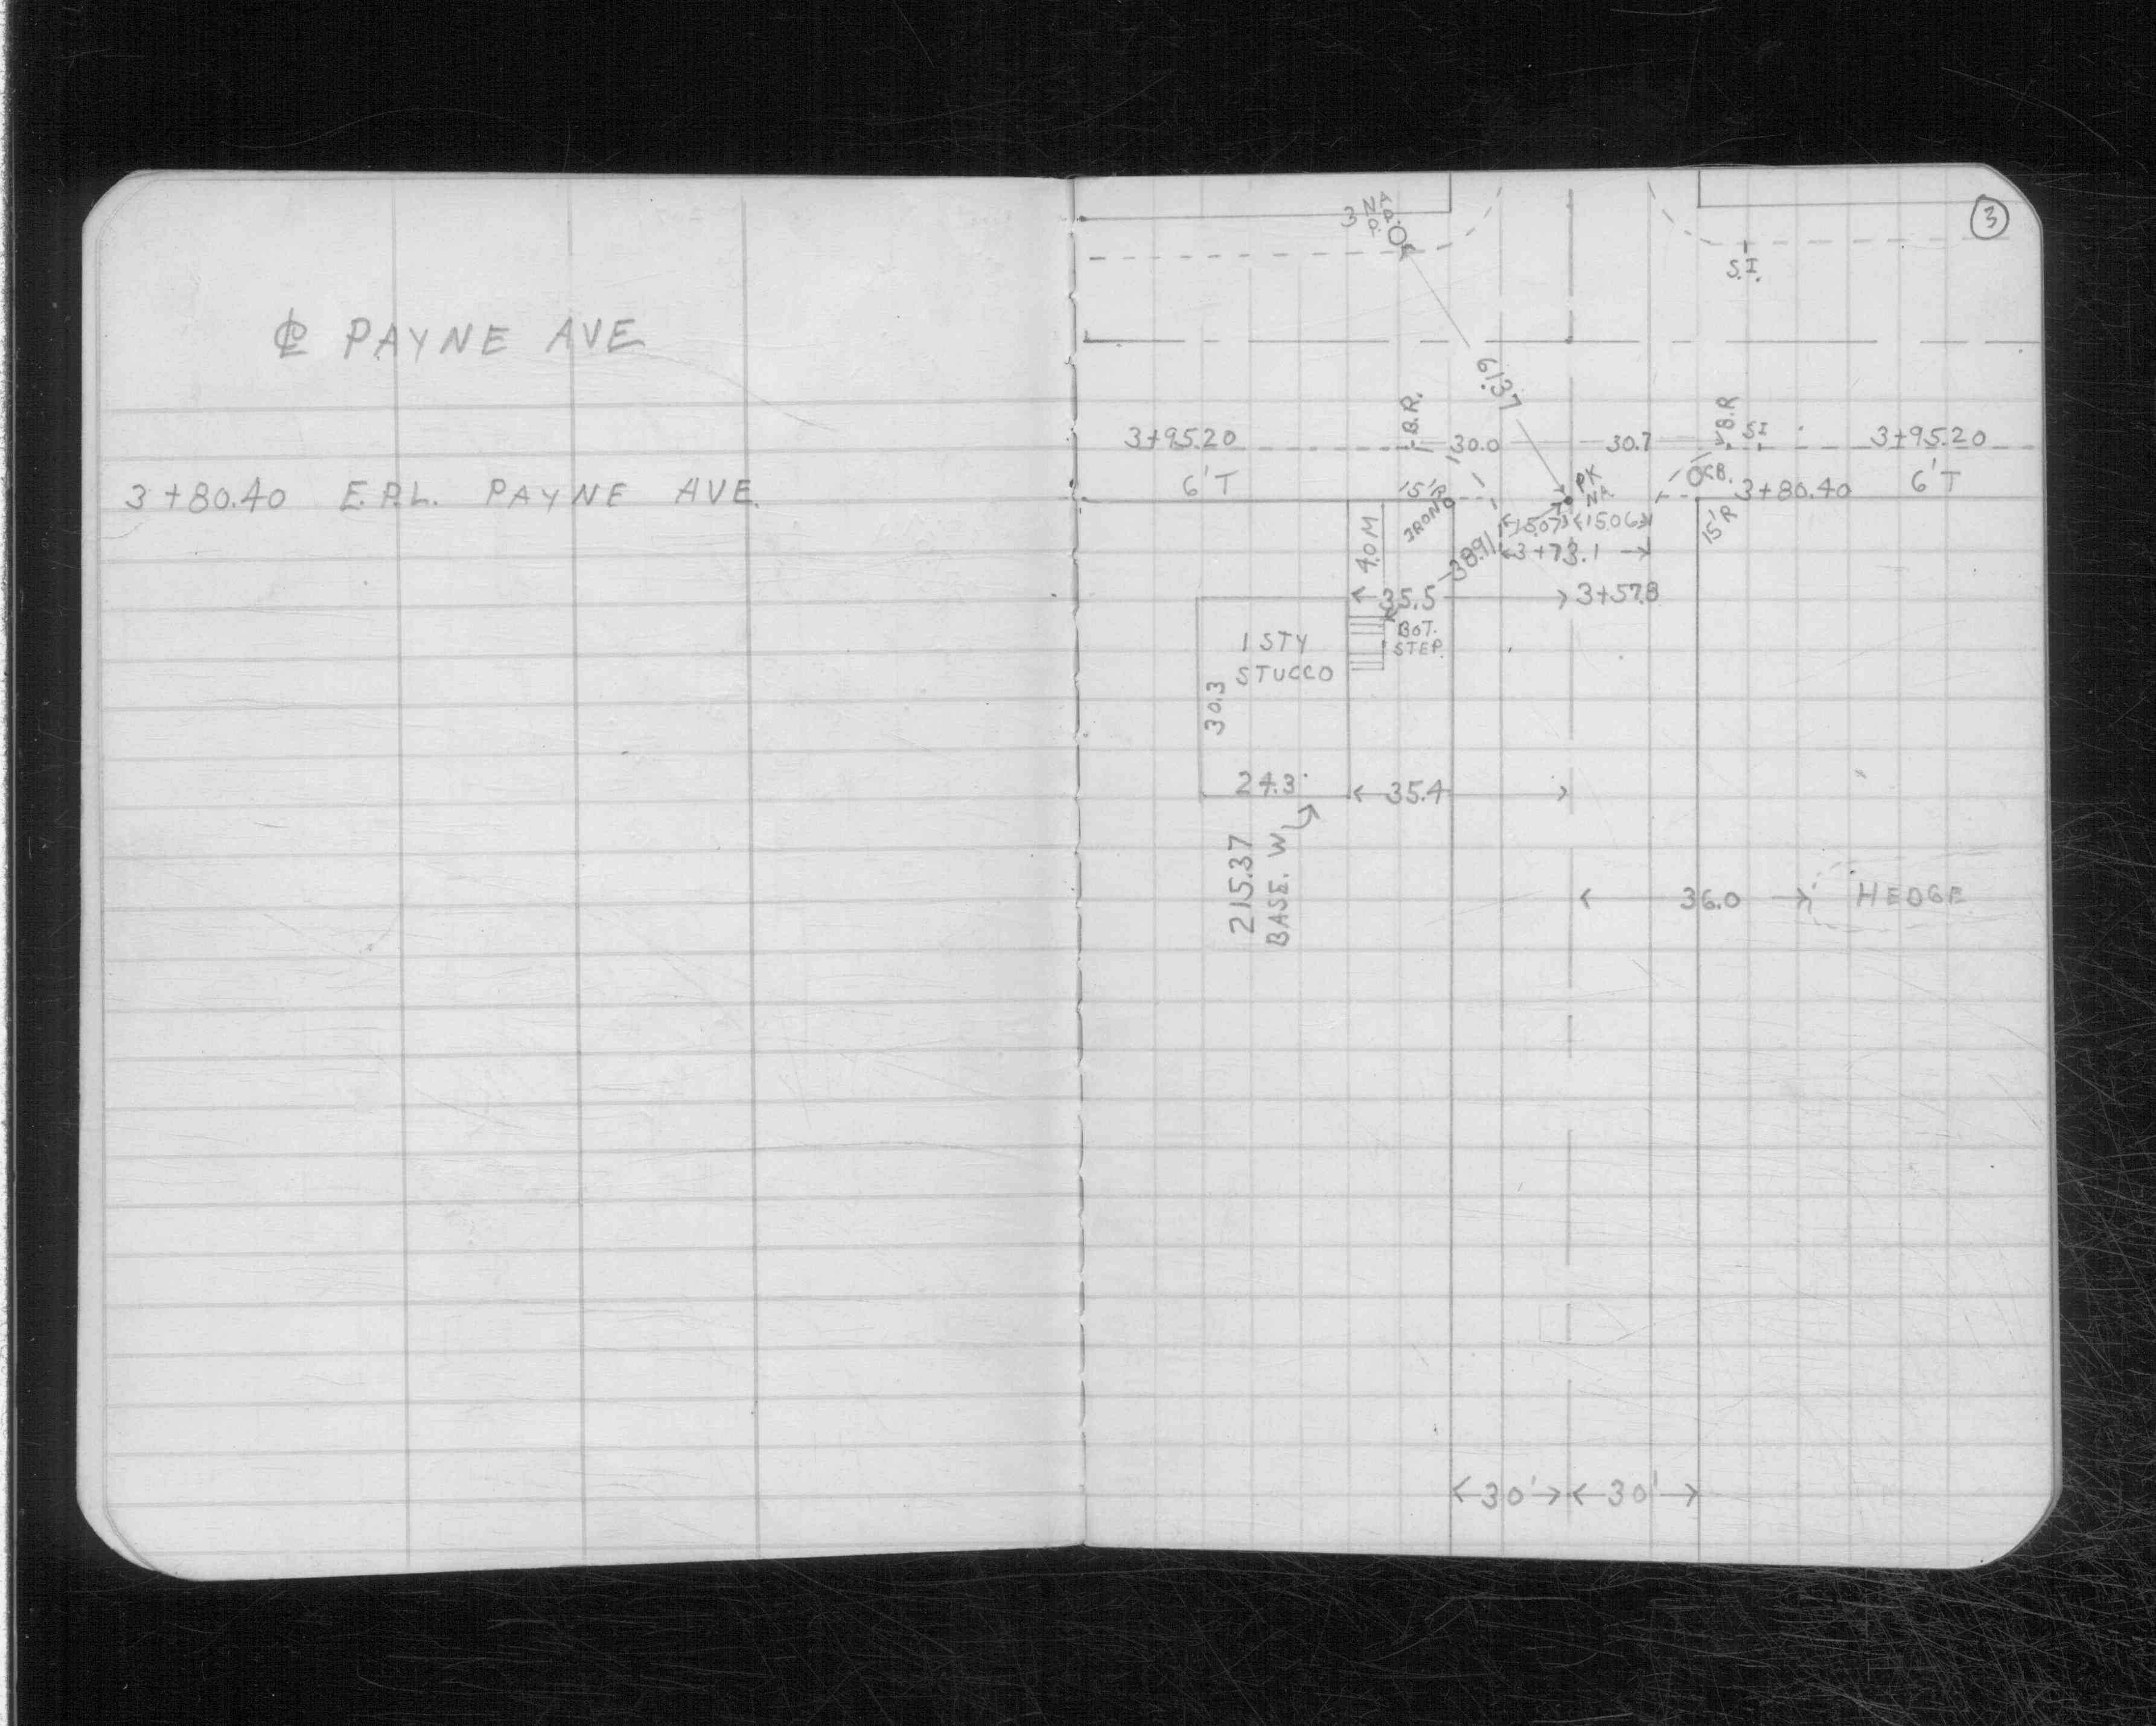 ℄ PAYNE AVE
3+80.40 E.P.L. PAYNE AVE.
3
3 NA P.P.
S.I.
61.37
B.R.
B.R
3+95.20
30.0
30.7
S.I
3+95.20
6'T
15'R
IRON
PK
NA
C.B.
3+80.40
6'T
15.07
15.06
15'R
4.0 M
38.91
3+73.1
35.5
3+57.8
BOT.
STEP.
1 STY
STUCCO
30.3
24.3
35.4
215.37
BASE. W
36.0
HEDGE
30'
30'